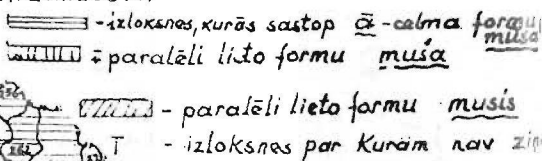 - izloksnes, kurās sastop ā-celma formu
muša
- paralēli lieto formu muša
- paralēli lieto formu musis
T - izloksnes par kurām nav